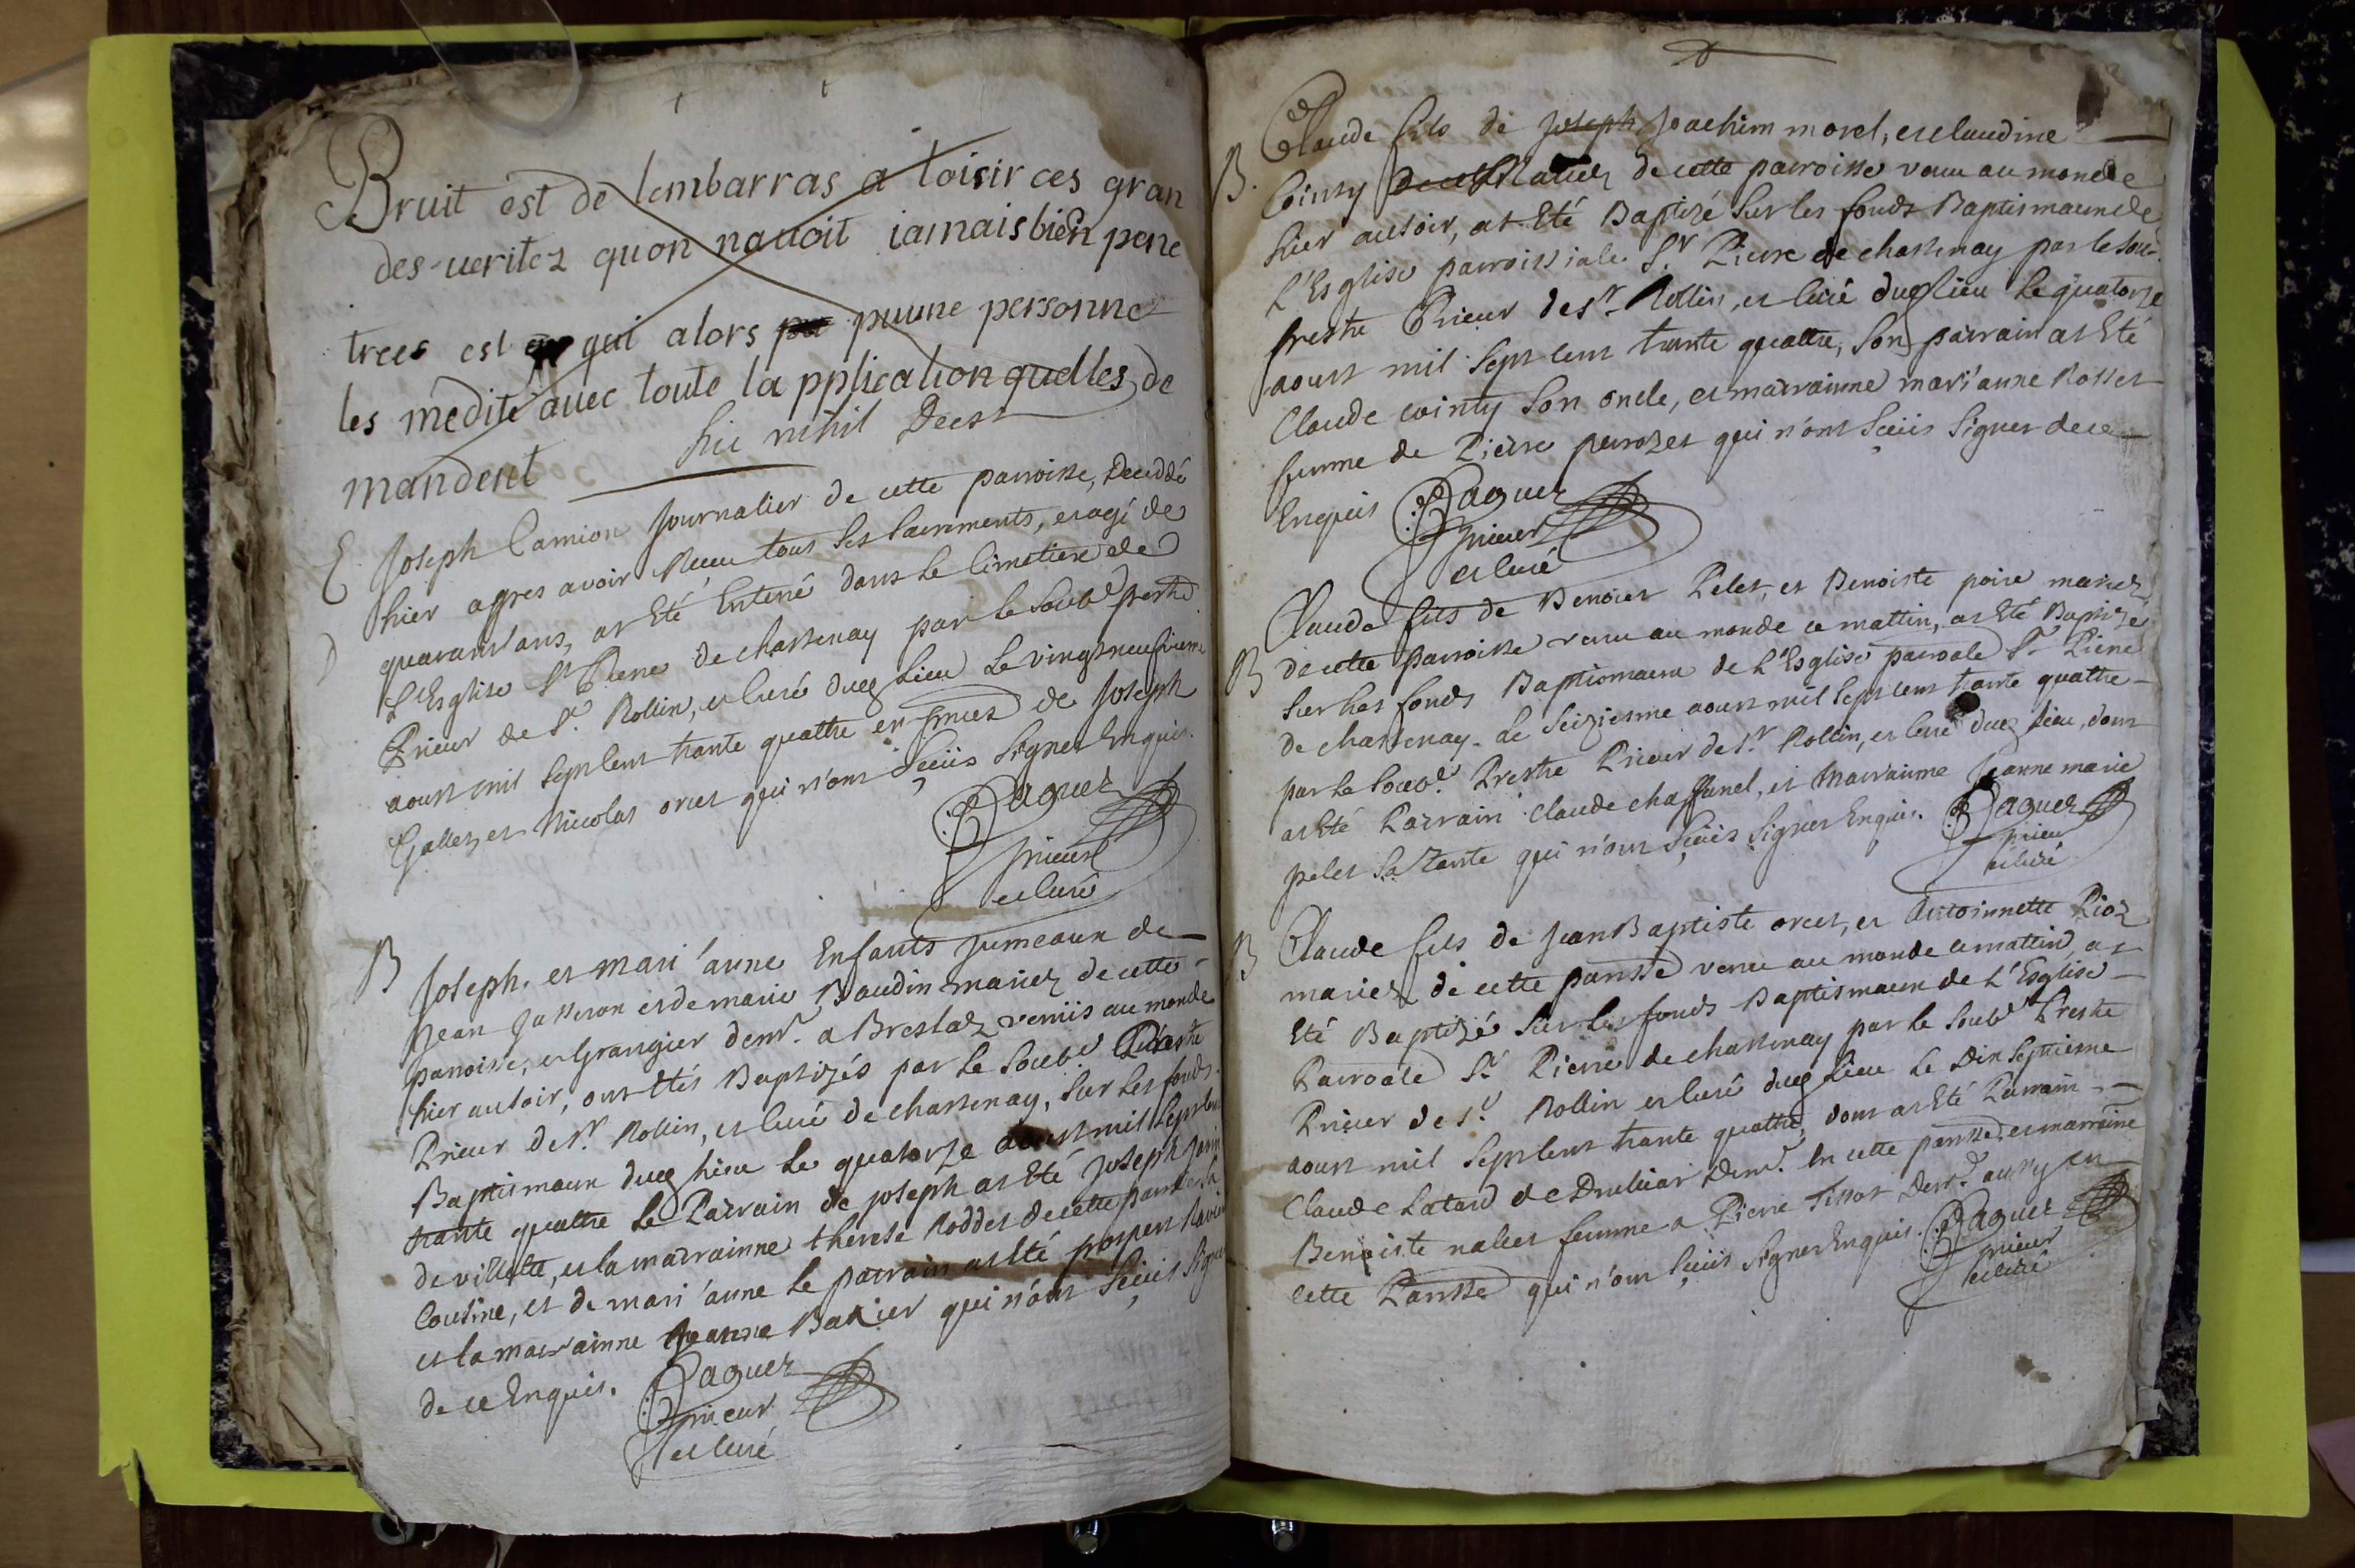 Bruit est de lembarras a loisir ces gran
des ueritez quon nauoit iamais bien pene
trees est qui alors puune personne
les medite auec toute lapplication quelles de
mandent
hic nihil Deest
E Joseph Camion Journalier de cette parroisse, Deceddé
hier apres avoir Receu tous ses sacrements, et agé de
quarant ans, at Eté Enterré dans le Cimetiere de
L'Esglise St Pierre de chassenay par le soubd prestre
Prieur de St. Rollin, et curé dud lieu Le vingtneufvieme
aoust mil sept cent trante quattre en pnces de Joseph
Gallez, et Nicolas orcet qui n'ont sceüis signer Enquis.
Paguez
prieur
et curé
B Joseph, et mari'anne Enfants Jumeaux de
Jean Jasseron et de marie Baudin mariez de cette
parroisse, et Grangier demt. a Breslaz venüs au monde
hier au soir, ont Etés Baptizés par le soubd Prestre
Prieur de St Rollin, et curé de chassenay, sur les fonds
Baptismaux dud lieu le quatorze aoust mil sept cent
trante quattre Le Parrain de joseph at Eté joseph
de villette, et la marrainne therese Roddet de cette
Cousine, et de mari'anne le parrain at Eté prosper
et la marrainne Jeanne Baxier qui n'ont sceüis signer
de ce Enquis. Paguez
prieur
et curé
B. Claude fils de Joseph Joachim morel, et claudine
Cointy mariez de cette parroisse venu au monde
hier au soir, at Eté Baptizé sur les fonds Baptismaux de
L'Esglise parroissiale St Pierre de chassenay par le sou-
prestre Prieur de st. Rollin, et curé dud lieu le quatorze
aoust mil sept cent trante quattre, son parrain at Eté
Claude cointy son oncle, et marrainne mari'anne Rosset
femme de Pierre perrozet qui n'ont sceüis signer de ce
Enquis Paguez
prieur
et curé
Claude fils de Benoist Pelet, et Benoiste poire mariez
B de cette parroisse venu au monde ce mattin, at Eté Baptizé
sur les fonds Baptismaux de L'Esglise parroale St Pierre
de chassenay. Le seizieme aoust mil sept cent trante quattre
par le soubd. Prestre Prieur de St Rollin, et curé dud lieu, dont
at Eté Parrain Claude chaffanel, et Marrainne Jeanne marie
pelet sa Tante qui n'ont sceüis signer Enquis. Paguez
prieur
et curé
B Claude fils de Jean Baptiste orcet, et Antoinnette Pioz
mariez de cette parrsse venu au monde ce mattin, at
Eté Baptizé sur les fonds Baptismaux de L'Esglise
Parroale St Pierre de chassenay par le soubd Prestre
Prieur de St. Rollin et curé dud lieu Le Dix septieme
aoust mil sept cent trante quattre, dont at Eté Parrain
Claude Latard de Druhiar Demt. En cette parrsse, et marrainne
Benoiste nalet femme a Pierre Tissot Demt. aussy en
cette Parrsse qui n'ont sceüis signer Enquis. Paguez
prieur
et curé